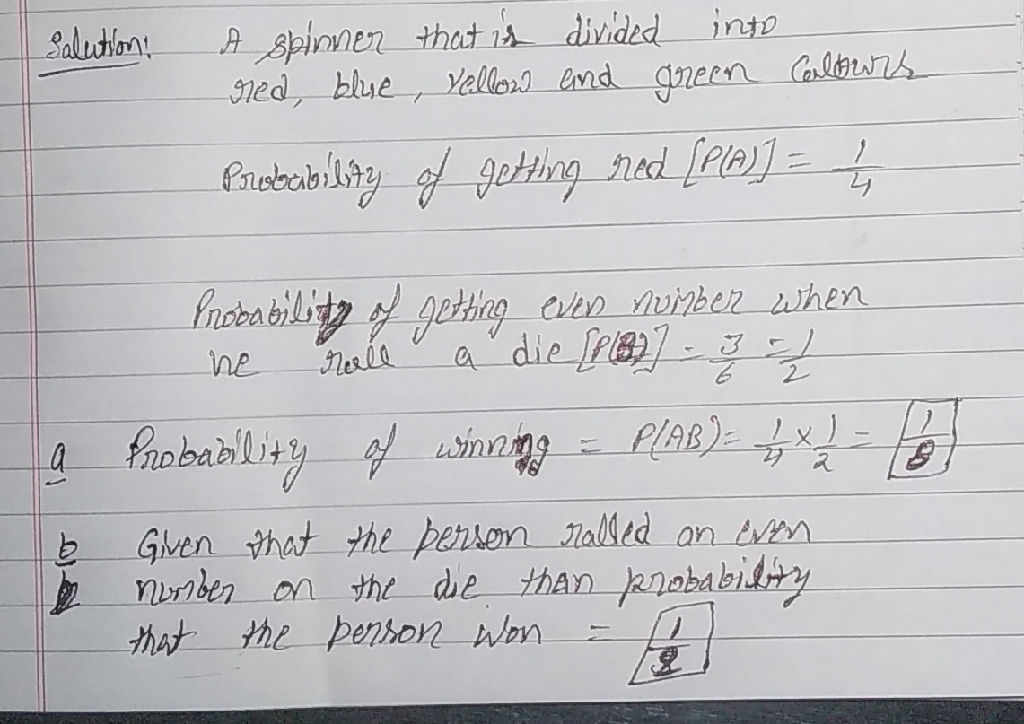 Solution: A spinner that is divided into
red, blue, Yellow and green Colours
Probability of getting red [P(A)] = 1/4
Probability of getting even number when
we roll a die [P(B)] = 3/6 = 1/2
a Probability of winning = P(AB) = 1/4 × 1/2 = 1/8
b Given that the person rolled an even
number on the die than probability
that the person won =